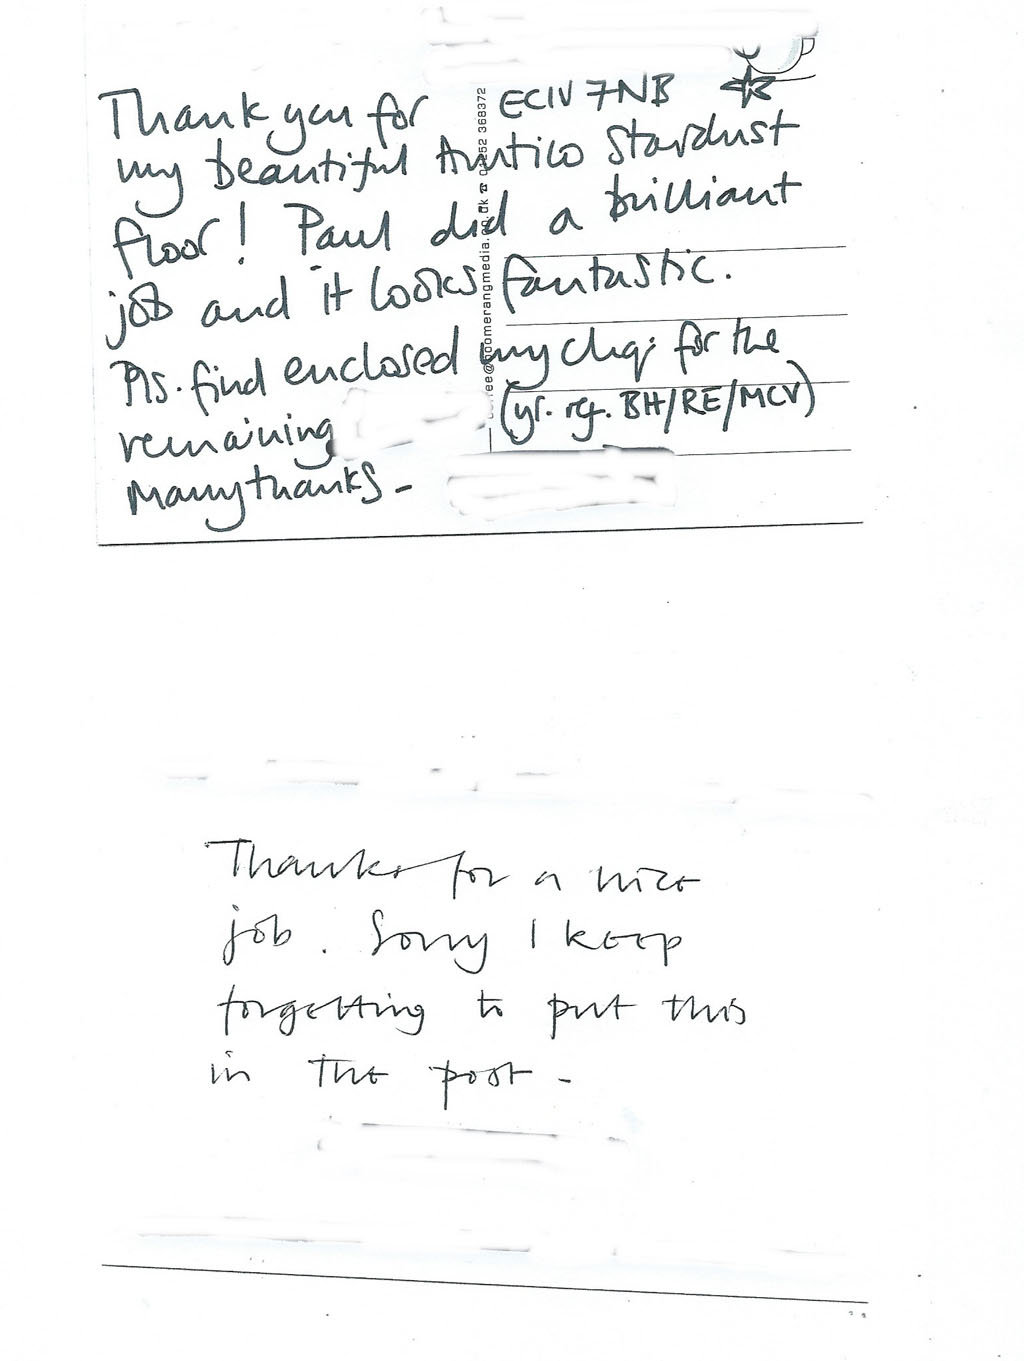 EC1V 7NB
Thank you for
my beautiful Amtico Stardust
floor! Paul did a brilliant
job and it looks fantastic.
Pls. find enclosed my chq. for the
remaining (yr. ref. BH/RE/MCV)
Many thanks -
@boomerangmedia.co.uk ☎ 01252 368372
Thanks for a nice
job. Sorry I keep
forgetting to put this
in the post -